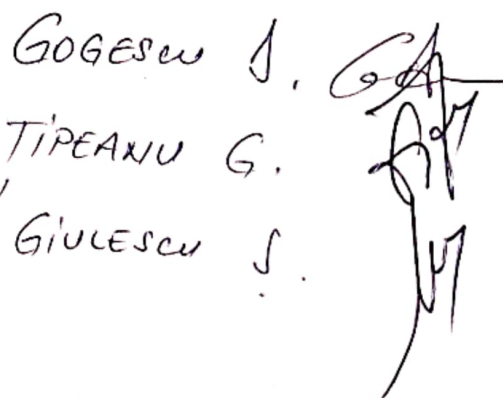 GOGESCU I.
ȚIPEANU G.
GIULESCU Ș.